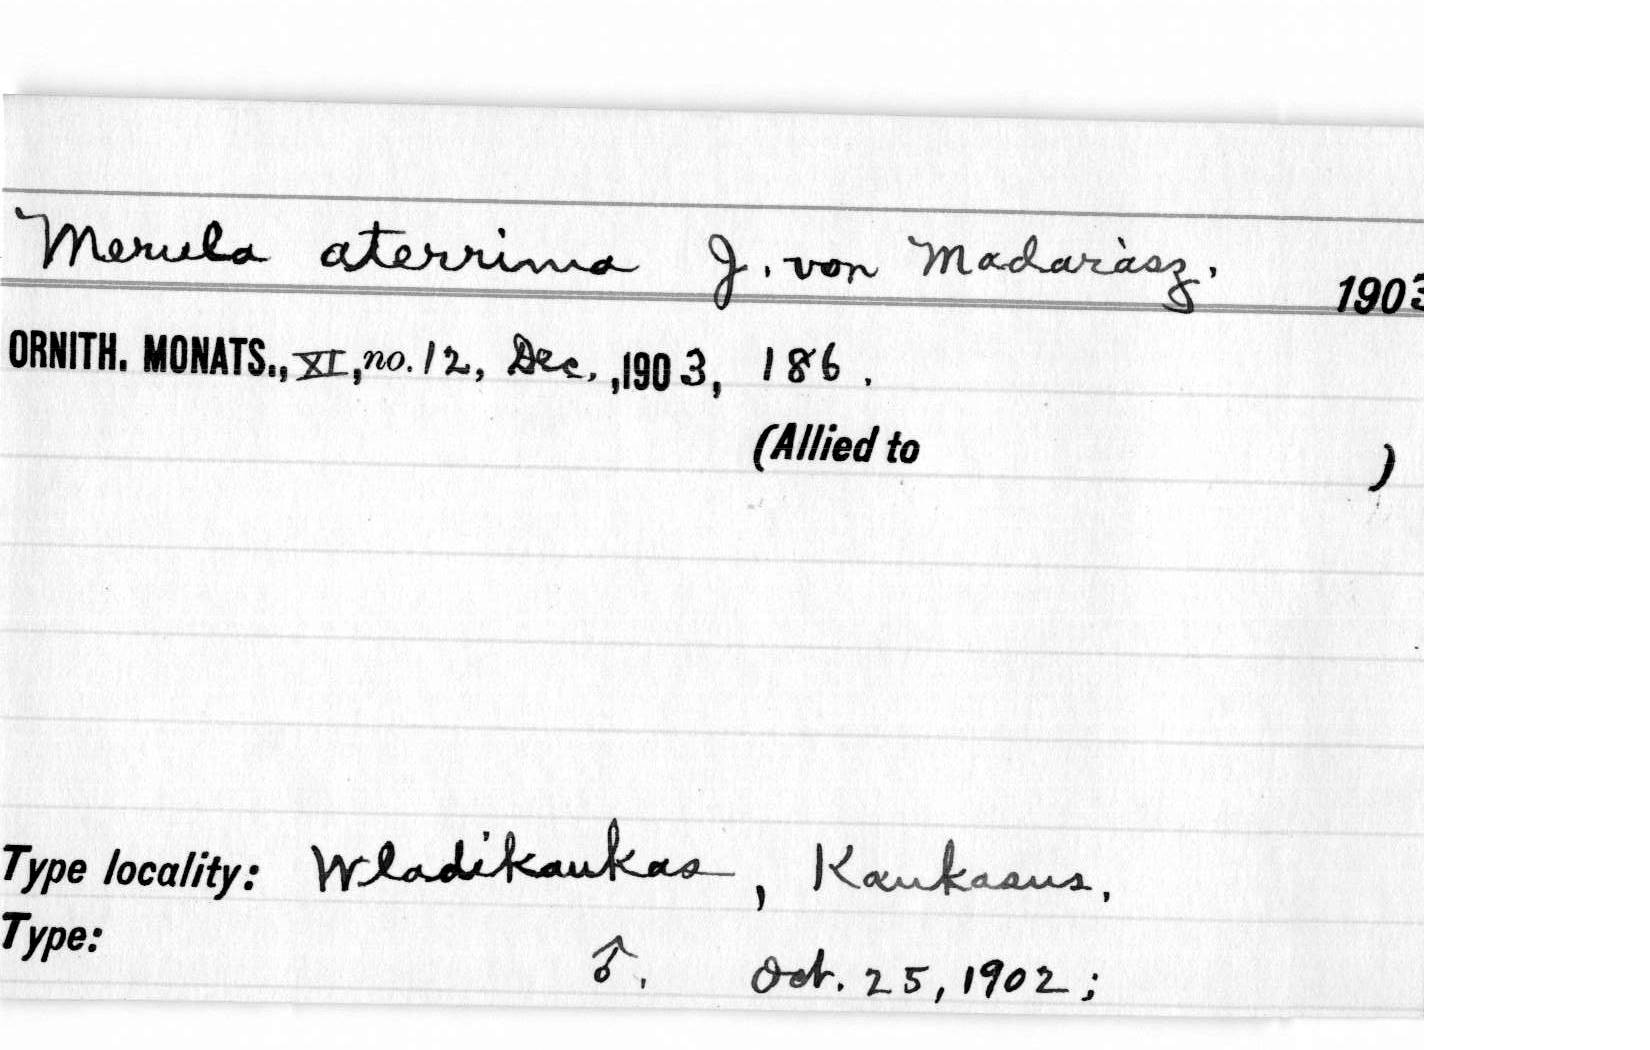 Merula aterrima J. von Madaràsz. 1903
ORNITH. MONATS., XI, no. 12, Dec., ,1903, 186.
(Allied to )
Type locality: Wladikaukas, Kaukasus.
Type: ♂. Oct. 25, 1902;